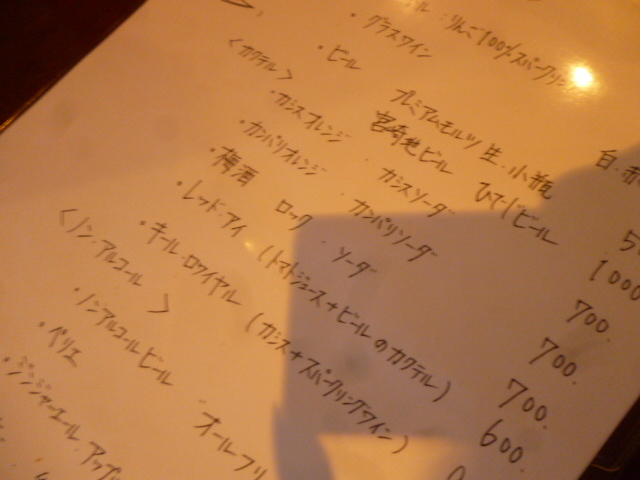 ル：りんご100%スパークリン
・グラスワイン 白・赤
・ビール プレミアムモルツ 生・小瓶 5
宮崎地ビール ひでじビール 1000
〈カクテル〉
・カシスオレンジ ・カシスソーダ 700.
・カンパリオレンジ ・カンパリソーダ 700.
・梅酒 ロック ・ソーダ 700.
・レッド・アイ (トマトジュース+ビールのカクテル) 600.
・キール・ロワイヤル (カシス+スパークリングワイン) 0
〈ノン・アルコール〉
・ノンアルコールビール オールフリ
・ペリエ
・ジンジャーエール・アップ